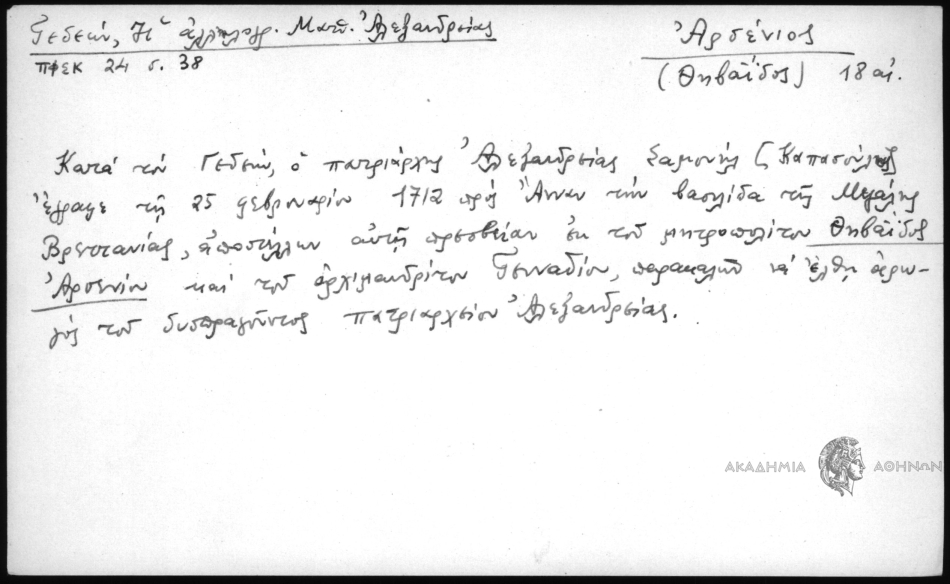 Γεδεών, Ἡ ἀλληλογρ. Ματθ. Ἀλεξανδρείας
ΠΦΕΚ 24 σ. 38
Ἀρσένιος
(Θηβαΐδος) 18 αἰ.
Κατά τόν Γεδεών, ὁ πατριάρχης Ἀλεξανδρείας Σαμουήλ Καπασούλης
ἔγραψε τῇ 25 φεβρουαρίου 1712 πρός Ἄνναν τήν βασιλίδα τῆς Μεγάλης
Βρεττανίας, ἀποστέλλων αὐτῇ πρεσβείαν ἐκ τοῦ μητροπολίτου Θηβαΐδος
Ἀρσενίου καί τοῦ ἀρχιμανδρίτου Γενναδίου, παρακαλῶν νά ἔλθῃ ἀρω-
γός τοῦ δυσπραγοῦντος πατριαρχείου Ἀλεξανδρείας.
ΑΚΑΔΗΜΙΑ ΑΘΗΝΩΝ